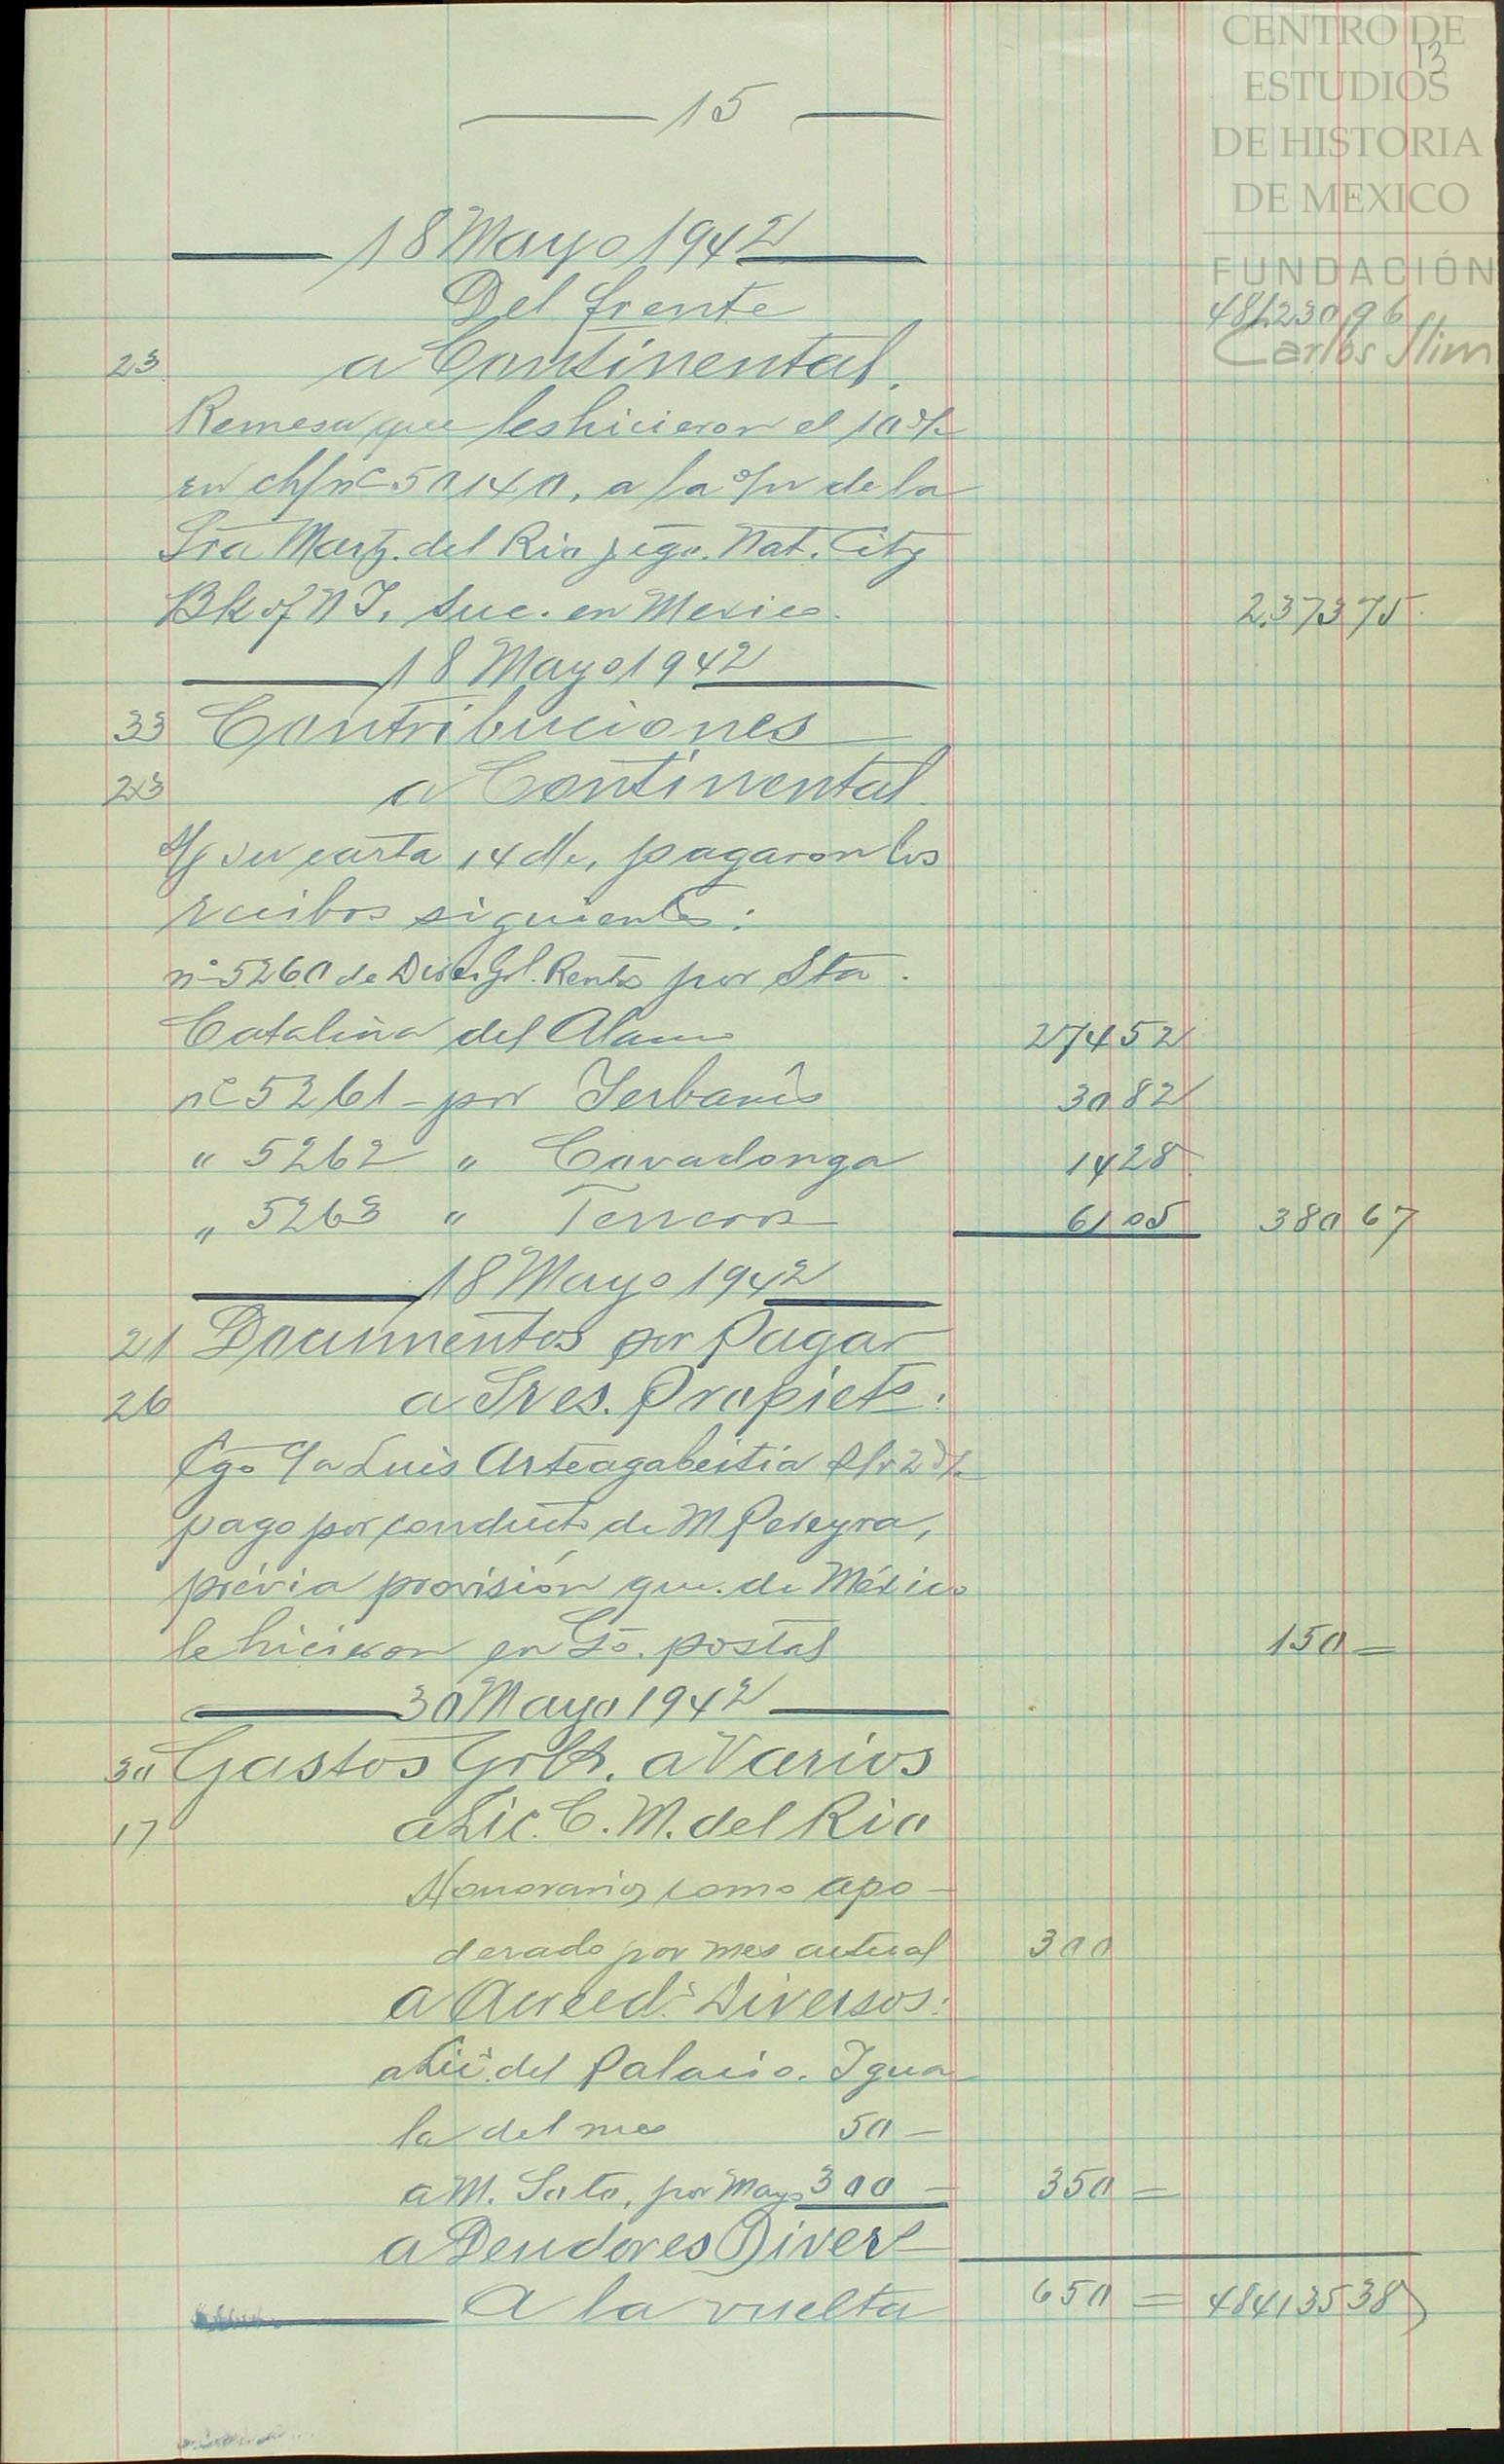 CENTRO DE
ESTUDIOS
DE HISTORIA
DE MEXICO
FUNDACIÓN
Carlos Slim
13
15
18 Mayo 1942
Del frente 481.230 96
23 a Continental.
Remesa que les hicieron el 10 d/e
en ch/ nº 50140, a la o/n de la
Sra Martz. del Rio y cgo. Nat. City
Bk of N Y, Suc. en Mexico. 2.373 75
18 Mayo 1942
33 Contribuciones
23 a Continental
S/g su carta 14 d/e, pagaron los
recibos siguientes:
nº 5260 de Dir. Gral. Rentas por Sta.
Catalina del Alamo 274 52
nº 5261 - por Yerbanis 30 82
" 5262 " Covadonga 14 28
" 5263 " Terreros 61 05 380 67
18 Mayo 1942
21 Documentos por Pagar
26 a Sres. Propiets.
Cgo Luis Arteagabeitia
pago por conducto de M Pereyra,
prévia provisión que de México
le hicieron en Go. postal 150 =
30 Mayo 1942
30 Gastos Grls. a Varios
17 a Lic. C. M. del Rio
Honorarios como apo-
derado por mes actual 300
a Acreeds Diversos:
a Lic. del Palacio. Igua
la del mes 50 -
a M. Soto, por Mayo 300 - 350 =
a Deudores Divers
A la vuelta 650 = 484135 38